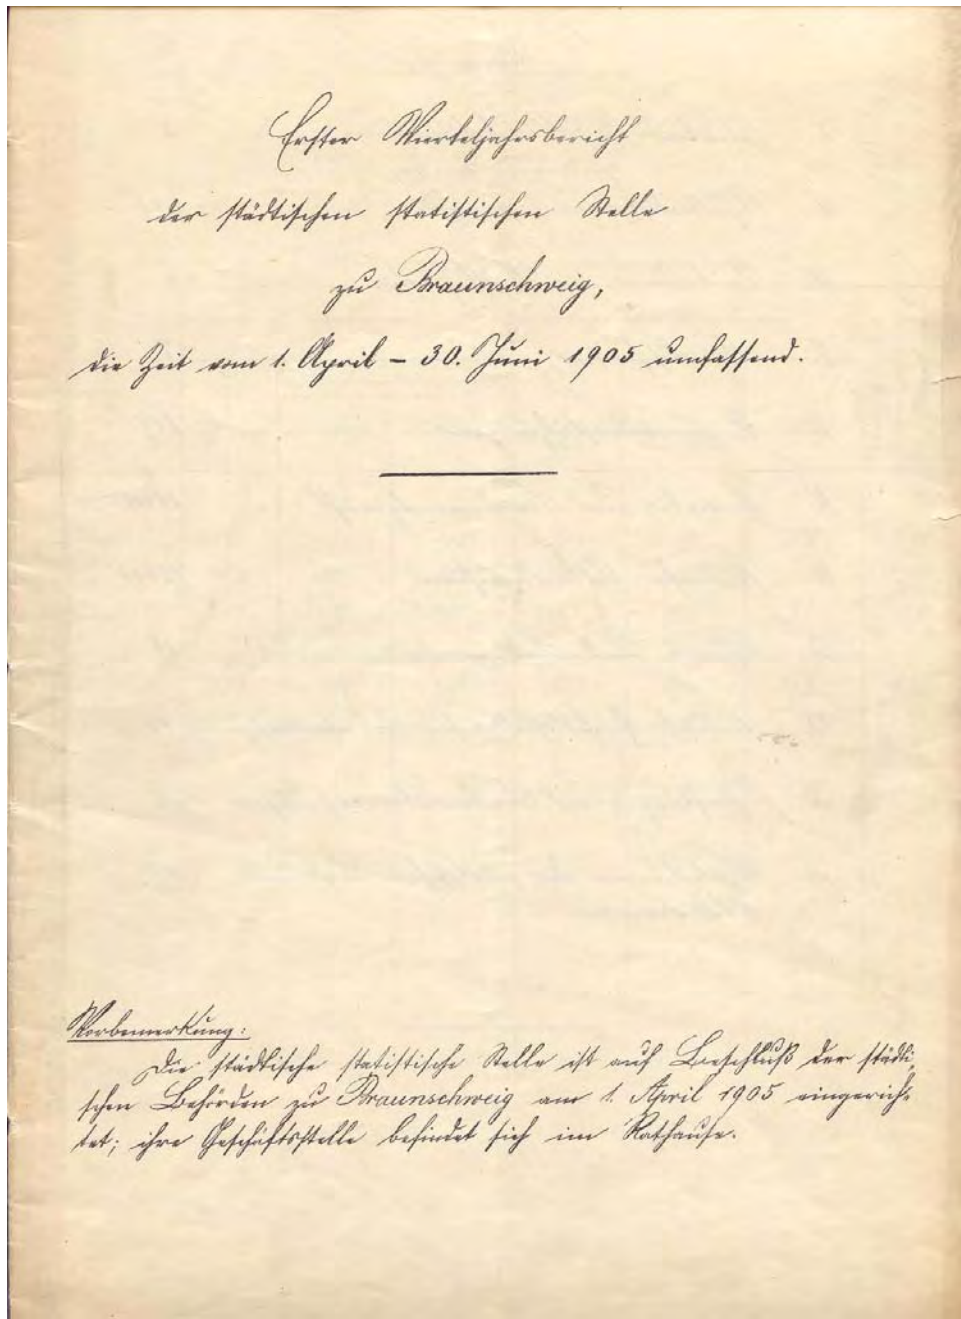 Erster Vierteljahrsbericht
der städtischen statistischen Stelle
zu Braunschweig,
die Zeit vom 1. April – 30. Juni 1905 umfassend.
Vorbemerkung:
Die städtische statistische Stelle ist auf Beschluß der städti-
schen Behörden zu Braunschweig am 1. April 1905 eingerich-
tet; ihre Geschäftsstelle befindet sich im Rathause.